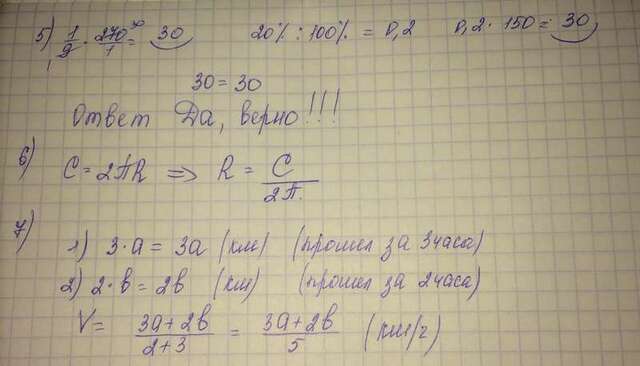 5) 1/9 · 270/1 = 30 20% : 100% = 0,2 0,2 · 150 = 30
30 = 30
Ответ Да, верно!!!
6) C = 2πR => R = C/2π.
7) 1) 3·a = 3a (км) (прошел за 3 часа)
2) 2·b = 2b (км) (прошел за 2 часа)
V = 3a+2b/2+3 = 3a+2b/5 (км/г)